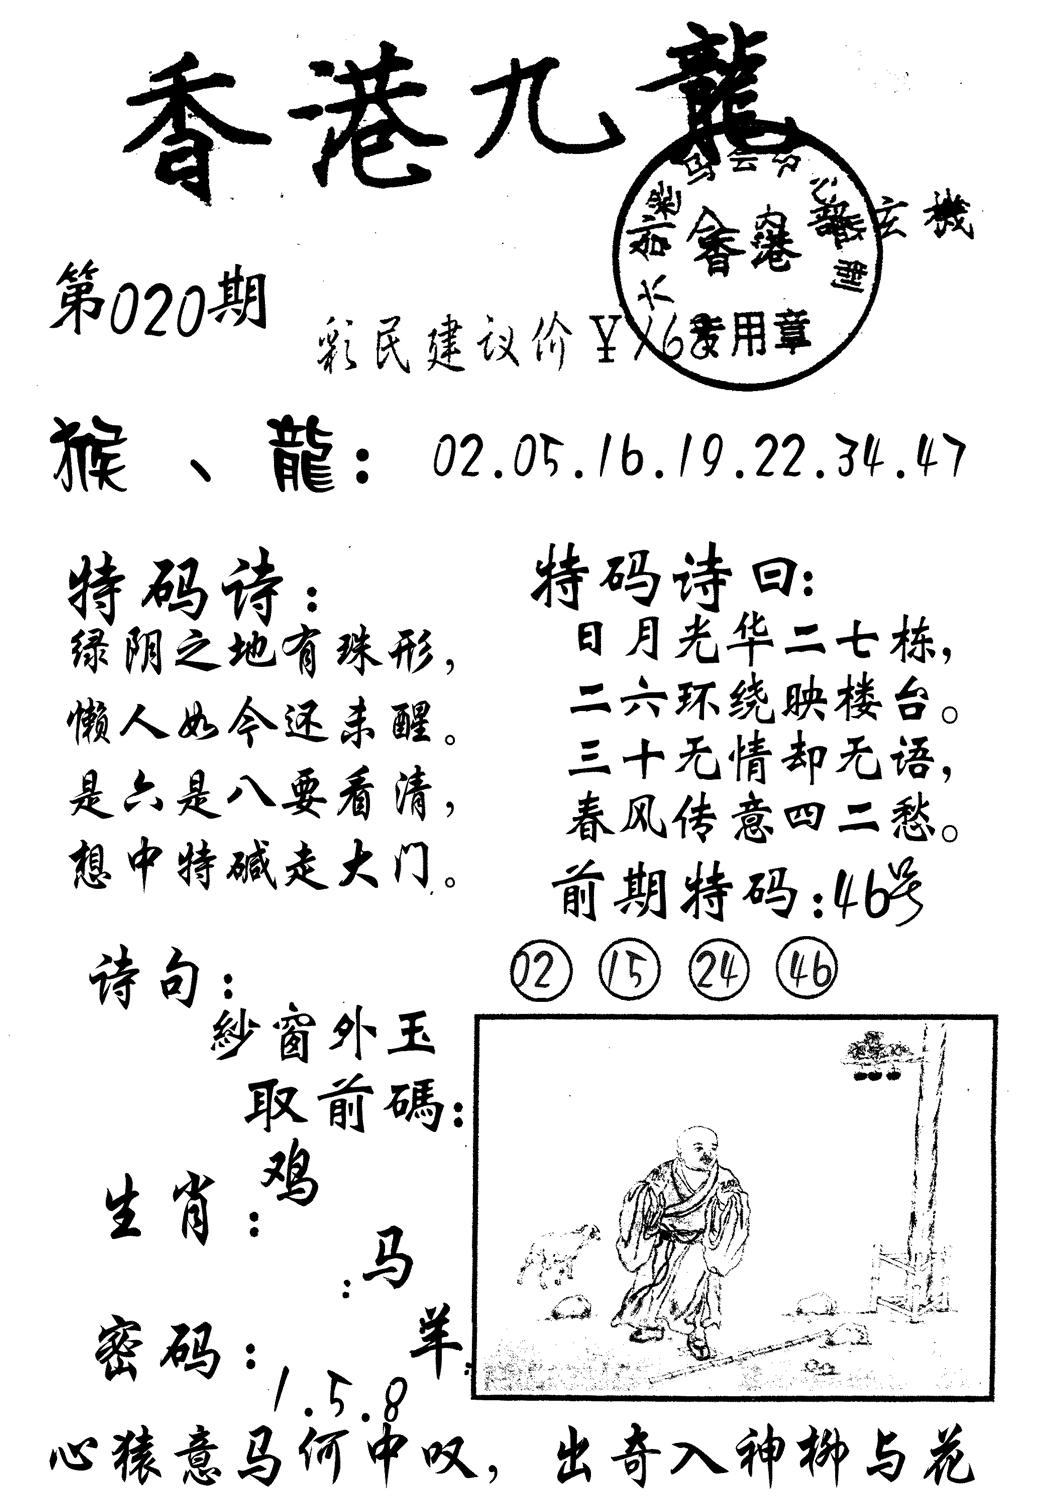 香港九龍
玄機
第020期
彩民建议价￥168
香港
专用章
猴、龍：02.05.16.19.22.34.47
特码诗：
绿阴之地有珠形，
懒人如今还未醒。
是六是八要看清，
想中特碱走大门。
特码诗曰：
日月光华二七栋，
二六环绕映楼台。
三十无情却无语，
春风传意四二愁。
前期特码：46号
02 15 24 46
诗句：
紗窗外玉
取前碼：
生肖：鸡
：马
羊
密码：
1.5.8
心猿意马何中叹，出奇入神柳与花